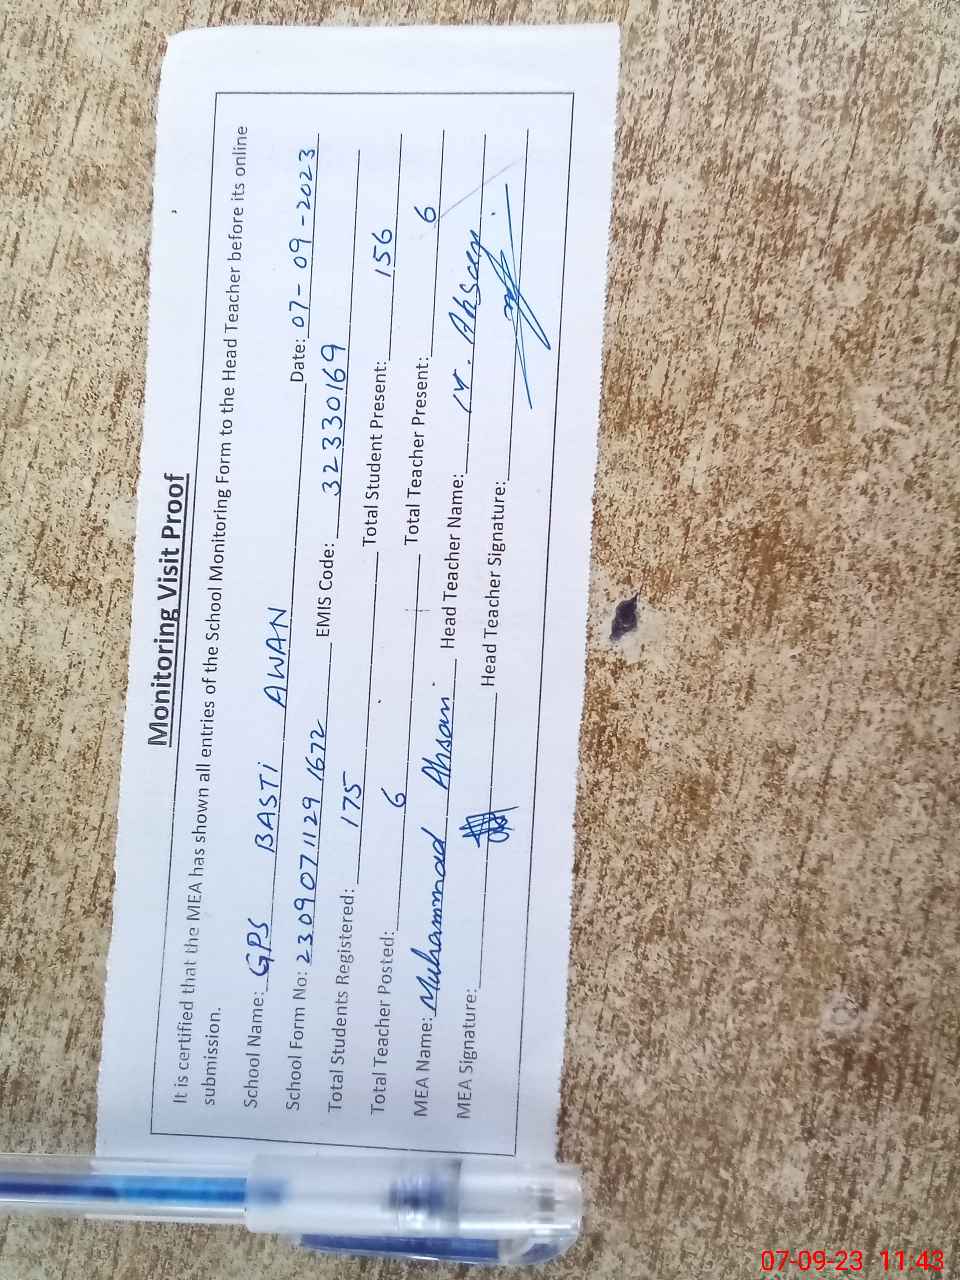 Monitoring Visit Proof
It is certified that the MEA has shown all entries of the School Monitoring Form to the Head Teacher before its online
submission.
School Name: GPS BASTI AWAN Date: 07-09-2023
School Form No: 2309071129 1672 EMIS Code: 32330169
Total Students Registered: 175 Total Student Present: 156
Total Teacher Posted: 6 Total Teacher Present: 6
MEA Name: Muhammad Ahsan Head Teacher Name: M. Ahsan
MEA Signature: Head Teacher Signature:
07-09-23 11:43